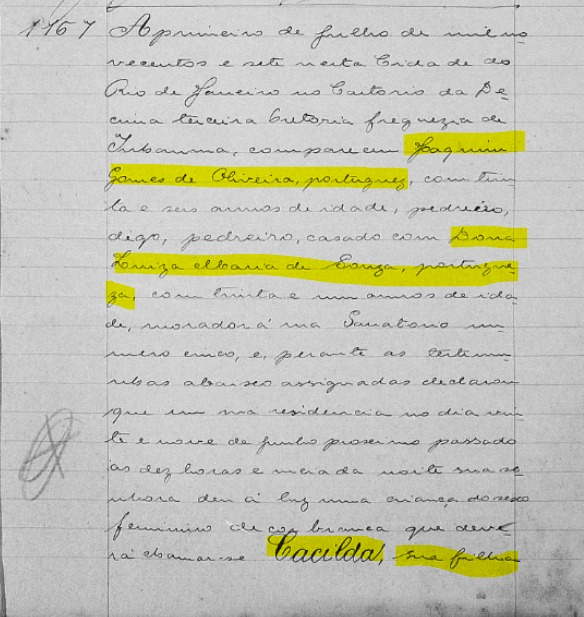 1157
A primeiro de Julho de mil no
vecentos e sete nesta Cidade do
Rio de Janeiro no Cartorio da De
cima terceira Pretoria freguezia de
Inhauma, compareceu Joaquim
Gomes de Oliveira, portuguez, com trin
ta e seis annos de idade, pedreiro,
digo, pedreiro, casado com Dona
Luiza Maria de Souza, portugue
za, com trinta e um annos de ida
de, morador á rua Sanatorio nu
mero cinco, e, perante as testemu
nhas abaixo assignadas declarou
que em sua residencia no dia vin
te e nove de Junho proximo passado
ás dez horas e meia da noite sua se
nhora deu á luz uma criança do sexo
feminino de cor branca que deve
rá chamar-se Cacilda, sua filha